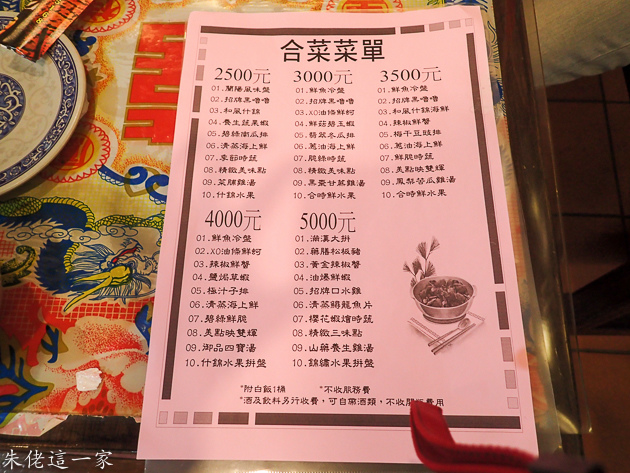 合菜菜單
2500元
01.蘭陽風味盤
02.招牌黑嚕嚕
03.和風什錦
04.養生蔬果蝦
05.碧綠南瓜排
06.清蒸海上鮮
07.季節時蔬
08.精緻美味點
09.菜脯雞湯
10.什錦水果
3000元
01.鮮魚冷盤
02.招牌黑嚕嚕
03.XO油條鮮蚵
04.鮮菇碧玉蝦
05.翡翠冬瓜排
06.蔥油海上鮮
07.脆綠時蔬
08.精緻美味點
09.黑棗甘蔗雞湯
10.合時鮮水果
3500元
01.鮮魚冷盤
02.招牌黑嚕嚕
03.和風什錦海鮮
04.辣椒鮮蟹
05.梅干豆豉排
06.蔥油海上鮮
07.鮮脆時蔬
08.美點映雙輝
09.鳳梨苦瓜雞湯
10.合時鮮水果
4000元
01.鮮魚冷盤
02.XO油條鮮蚵
03.辣椒鮮蟹
04.鹽焗草蝦
05.極汁子排
06.清蒸海上鮮
07.碧綠鮮脆
08.美點映雙輝
09.御品四寶湯
10.什錦水果拼盤
5000元
01.滿漢大拼
02.藥膳松板豬
03.黃金辣椒蟹
04.油爆鮮蝦
05.招牌口水雞
06.清蒸龍魚片
07.櫻花蝦燴時蔬
08.精緻三味點
09.山藥養生雞湯
10.錦繡水果拼盤
*附白飯1桶 *不收服務費
*酒及飲料另行收費，可自帶酒類，不收開瓶費用
朱佬這一家